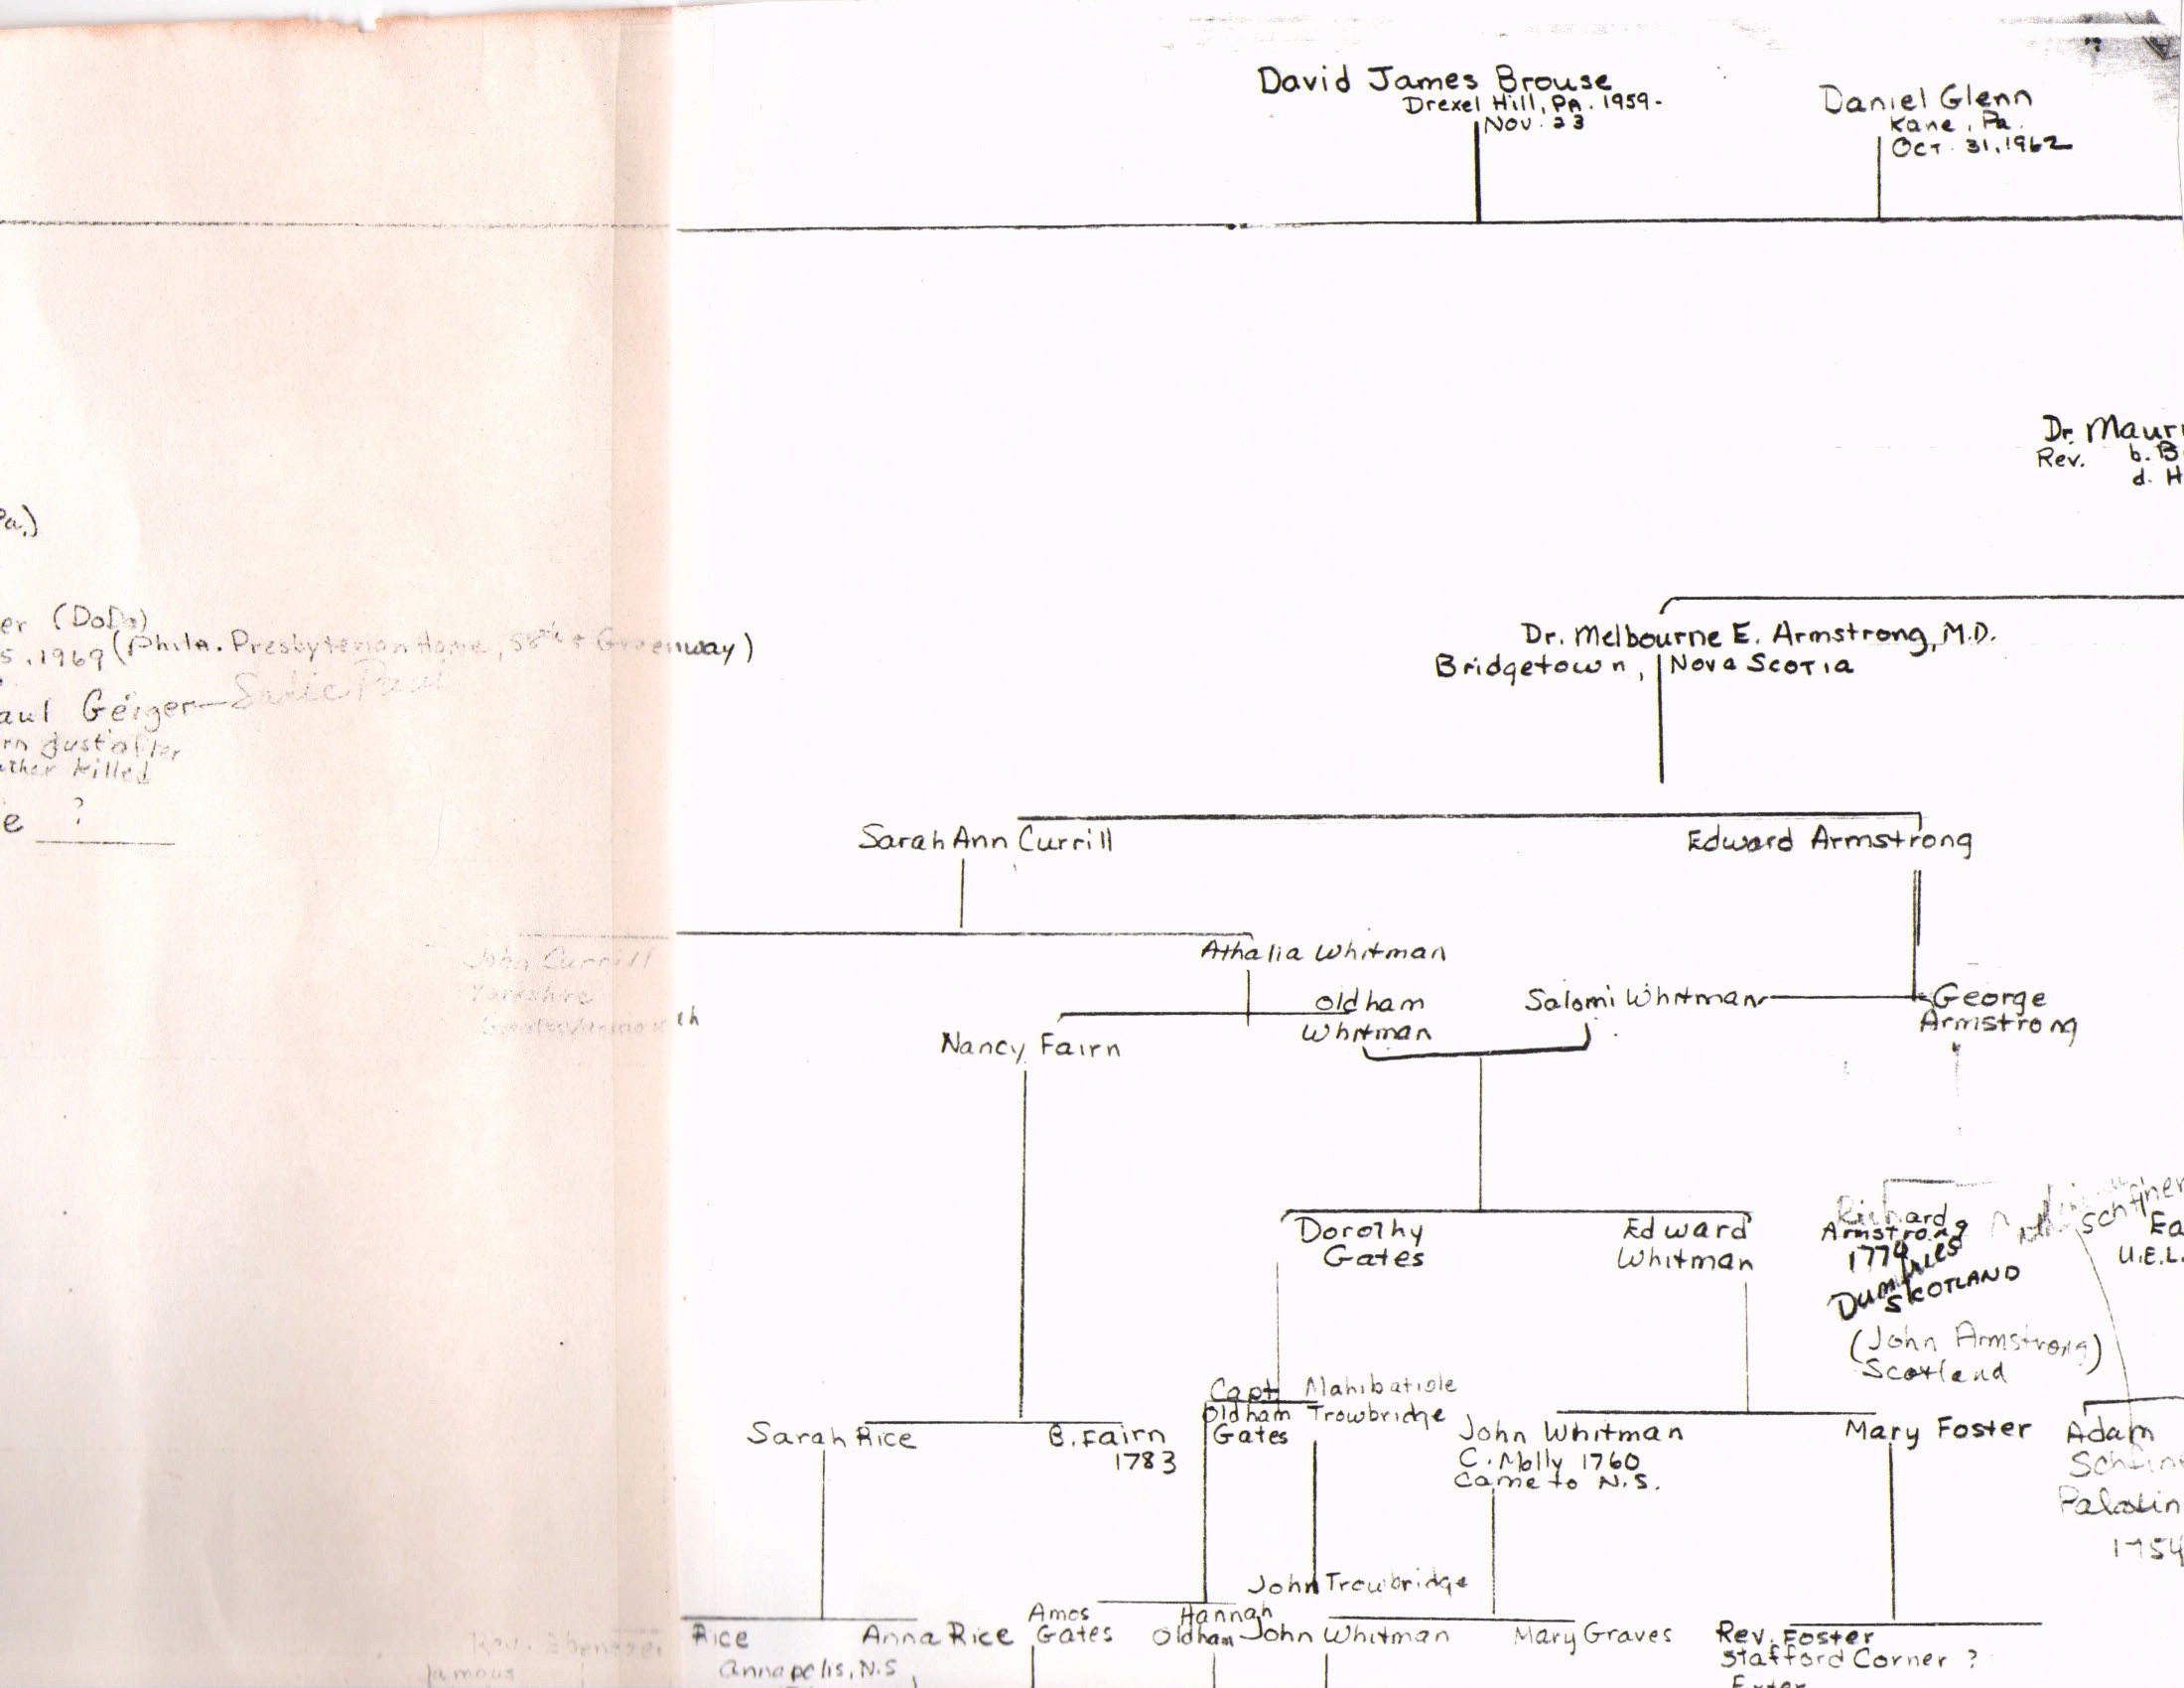 David James Brouse
Drexel Hill, PA. 1959-
Nov. 23
Daniel Glenn
Kane, Pa.
Oct. 31, 1962
Dr. Maur
Rev. b. B
d. H
Pa.)
er (DoDo)
5, 1969 (Phila. Presbyterian Home, 58th & Greenway)
aul Geiger - Sadie Paul
rn just after
ather killed
e ?
Dr. Melbourne E. Armstrong, M.D.
Bridgetown, Nova Scotia
Sarah Ann Currill
Edward Armstrong
John Currill
Yorkshire
th
Athalia Whitman
Oldham
Whitman
Salomi Whitman
George
Armstrong
Nancy Fairn
Dorothy
Gates
Edward
Whitman
Richard
Armstrong
1774
Dumfries
SKOTLAND
(John Armstrong)
Scotland
Ea
U.E.L.
Capt.
Oldham
Gates
Mahibatiole
Trowbridge
Sarah Rice
B. Fairn
1783
John Whitman
C. Molly 1760
Came to N.S.
Mary Foster
Adam
Schfin
Palatin
1754
John Trowbridge
Rev. Ebenezer Rice
famous
Anna Rice
Annapolis, N.S
Amos
Gates
Hannah
Oldham
John Whitman
Mary Graves
Rev. Foster
Stafford Corner ?
Exter